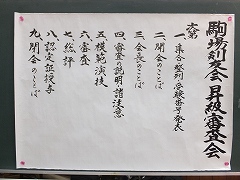 駒場剣友会 昇級審査会
次第
一、集合・整列・受験番号発表
二、開会のことば
三、会長のことば
四、審査の説明・諸注意
五、模範演技
六、審査
七、総評
八、認定証授与
九、閉会のことば